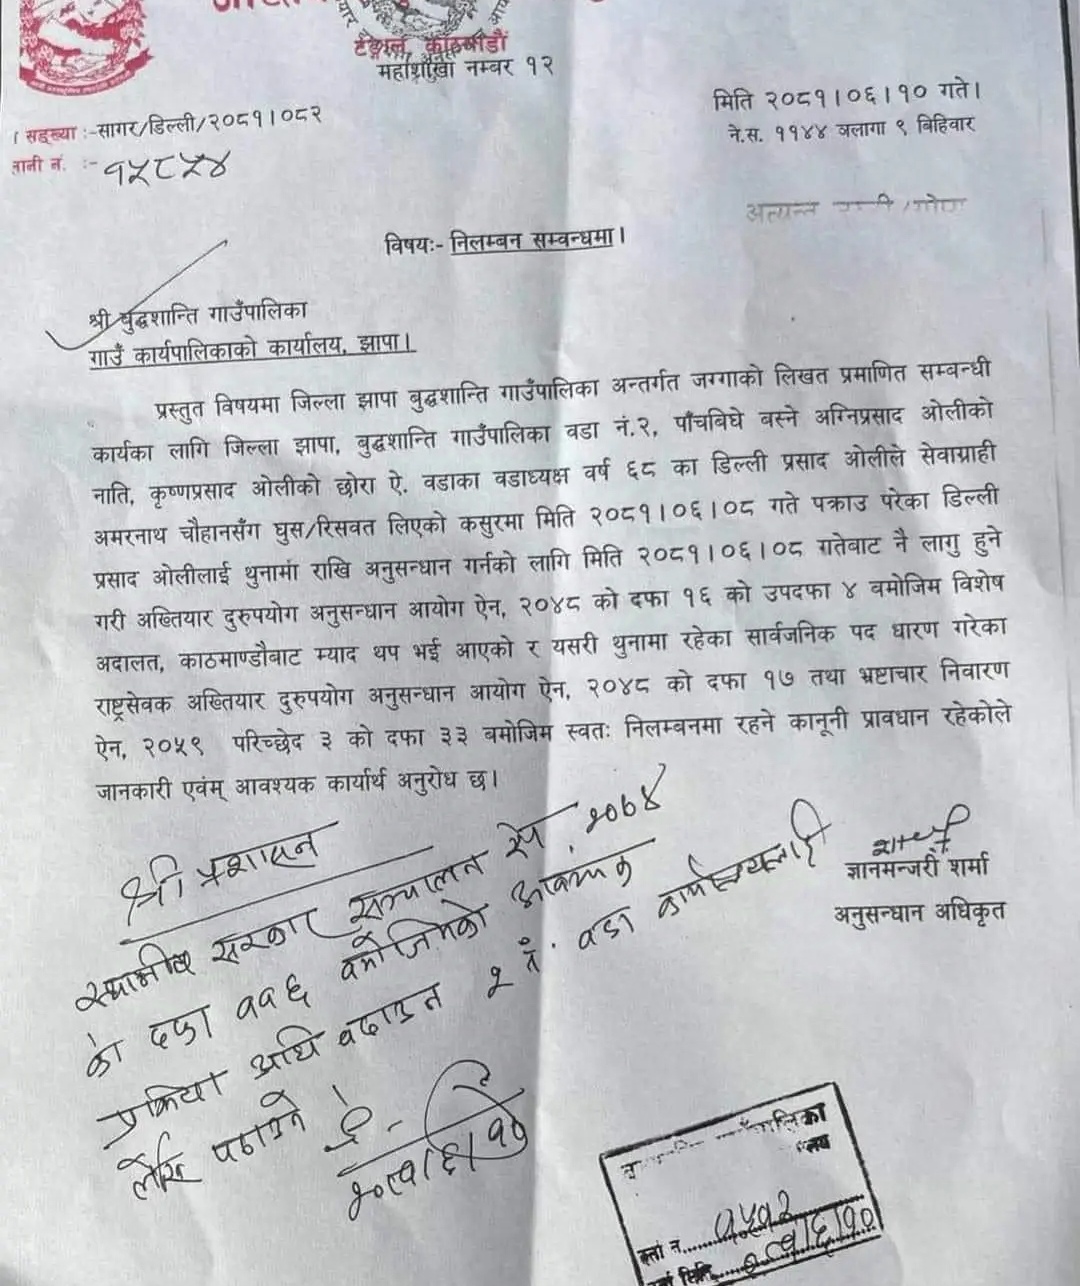 टङ्गाल, काठमाडौं
महाशाखा नम्बर १२
मिति २०८१।०६।१० गते।
ने.स. ११४४ ञलागा ९ बिहिवार
सङ्ख्या :-सागर/डिल्ली/२०८१।०८२
नं. :- १५८५४
अत्यन्त
विषयः- निलम्बन सम्वन्धमा।
श्री बुद्धशान्ति गाउँपालिका
गाउँ कार्यपालिकाको कार्यालय, झापा।
प्रस्तुत विषयमा जिल्ला झापा बुद्धशान्ति गाउँपालिका अन्तर्गत जग्गाको लिखत प्रमाणित सम्बन्धी
कार्यका लागि जिल्ला झापा, बुद्धशान्ति गाउँपालिका वडा नं.२, पाँचबिघे बस्ने अग्निप्रसाद ओलीको
नाति, कृष्णप्रसाद ओलीको छोरा ऐ. वडाका वडाध्यक्ष वर्ष ६८ का डिल्ली प्रसाद ओलीले सेवाग्राही
अमरनाथ चौहानसँग घुस/रिसवत लिएको कसुरमा मिति २०८१।०६।०८ गते पक्राउ परेका डिल्ली
प्रसाद ओलीलाई थुनामा राखि अनुसन्धान गर्नको लागि मिति २०८१।०६।०८ गतेबाट नै लागु हुने
गरी अख्तियार दुरुपयोग अनुसन्धान आयोग ऐन, २०४८ को दफा १६ को उपदफा ४ बमोजिम विशेष
अदालत, काठमाण्डौबाट म्याद थप भई आएको र यसरी थुनामा रहेका सार्वजनिक पद धारण गरेका
राष्ट्रसेवक अख्तियार दुरुपयोग अनुसन्धान आयोग ऐन, २०४८ को दफा १७ तथा भ्रष्टाचार निवारण
ऐन, २०५९ परिच्छेद ३ को दफा ३३ बमोजिम स्वतः निलम्बनमा रहने कानूनी प्रावधान रहेकोले
जानकारी एवंम् आवश्यक कार्यार्थ अनुरोध छ।
ज्ञानमन्जरी शर्मा
अनुसन्धान अधिकृत
श्री प्रशासन
स्थानीय सरकार सञ्चालन ऐन २०७४
को दफा ११६ बमोजिमको आवश्यक
प्रक्रिया अघि बढाउन २ नं. वडा कार्यालयलाई
लेखि पठाउने
२०८१/६/१०
र्ता नं. १५१२
मिति २०८१/६/१०